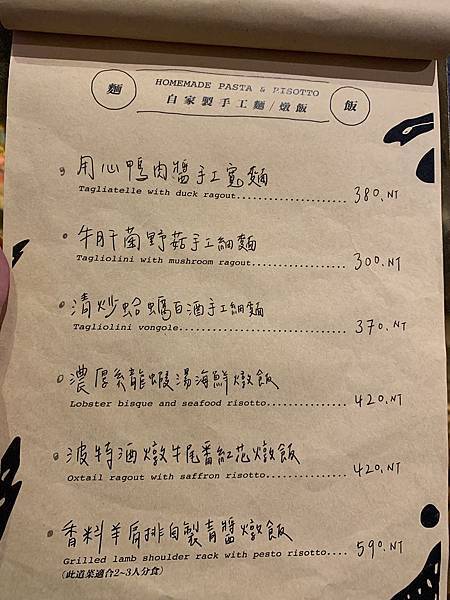 麵
HOMEMADE PASTA & RISOTTO
自家製手工麵/燉飯
飯
用心鴨肉醬手工寬麵
Tagliatelle with duck ragout.................. 380.NT
牛肝菌野菇手工細麵
Tagliolini with mushroom ragout............... 300.NT
清炒蛤蠣白酒手工細麵
Tagliolini vongole........................... 370.NT
濃厚系龍蝦湯海鮮燉飯
Lobster bisque and seafood risotto.............. 420.NT
波特酒燉牛尾番紅花燉飯
Oxtail ragout with saffron risotto.............. 420.NT
香料羊肩排自製青醬燉飯
Grilled lamb shoulder rack with pesto risotto.... 590.NT
(此道菜適合2~3人分食)